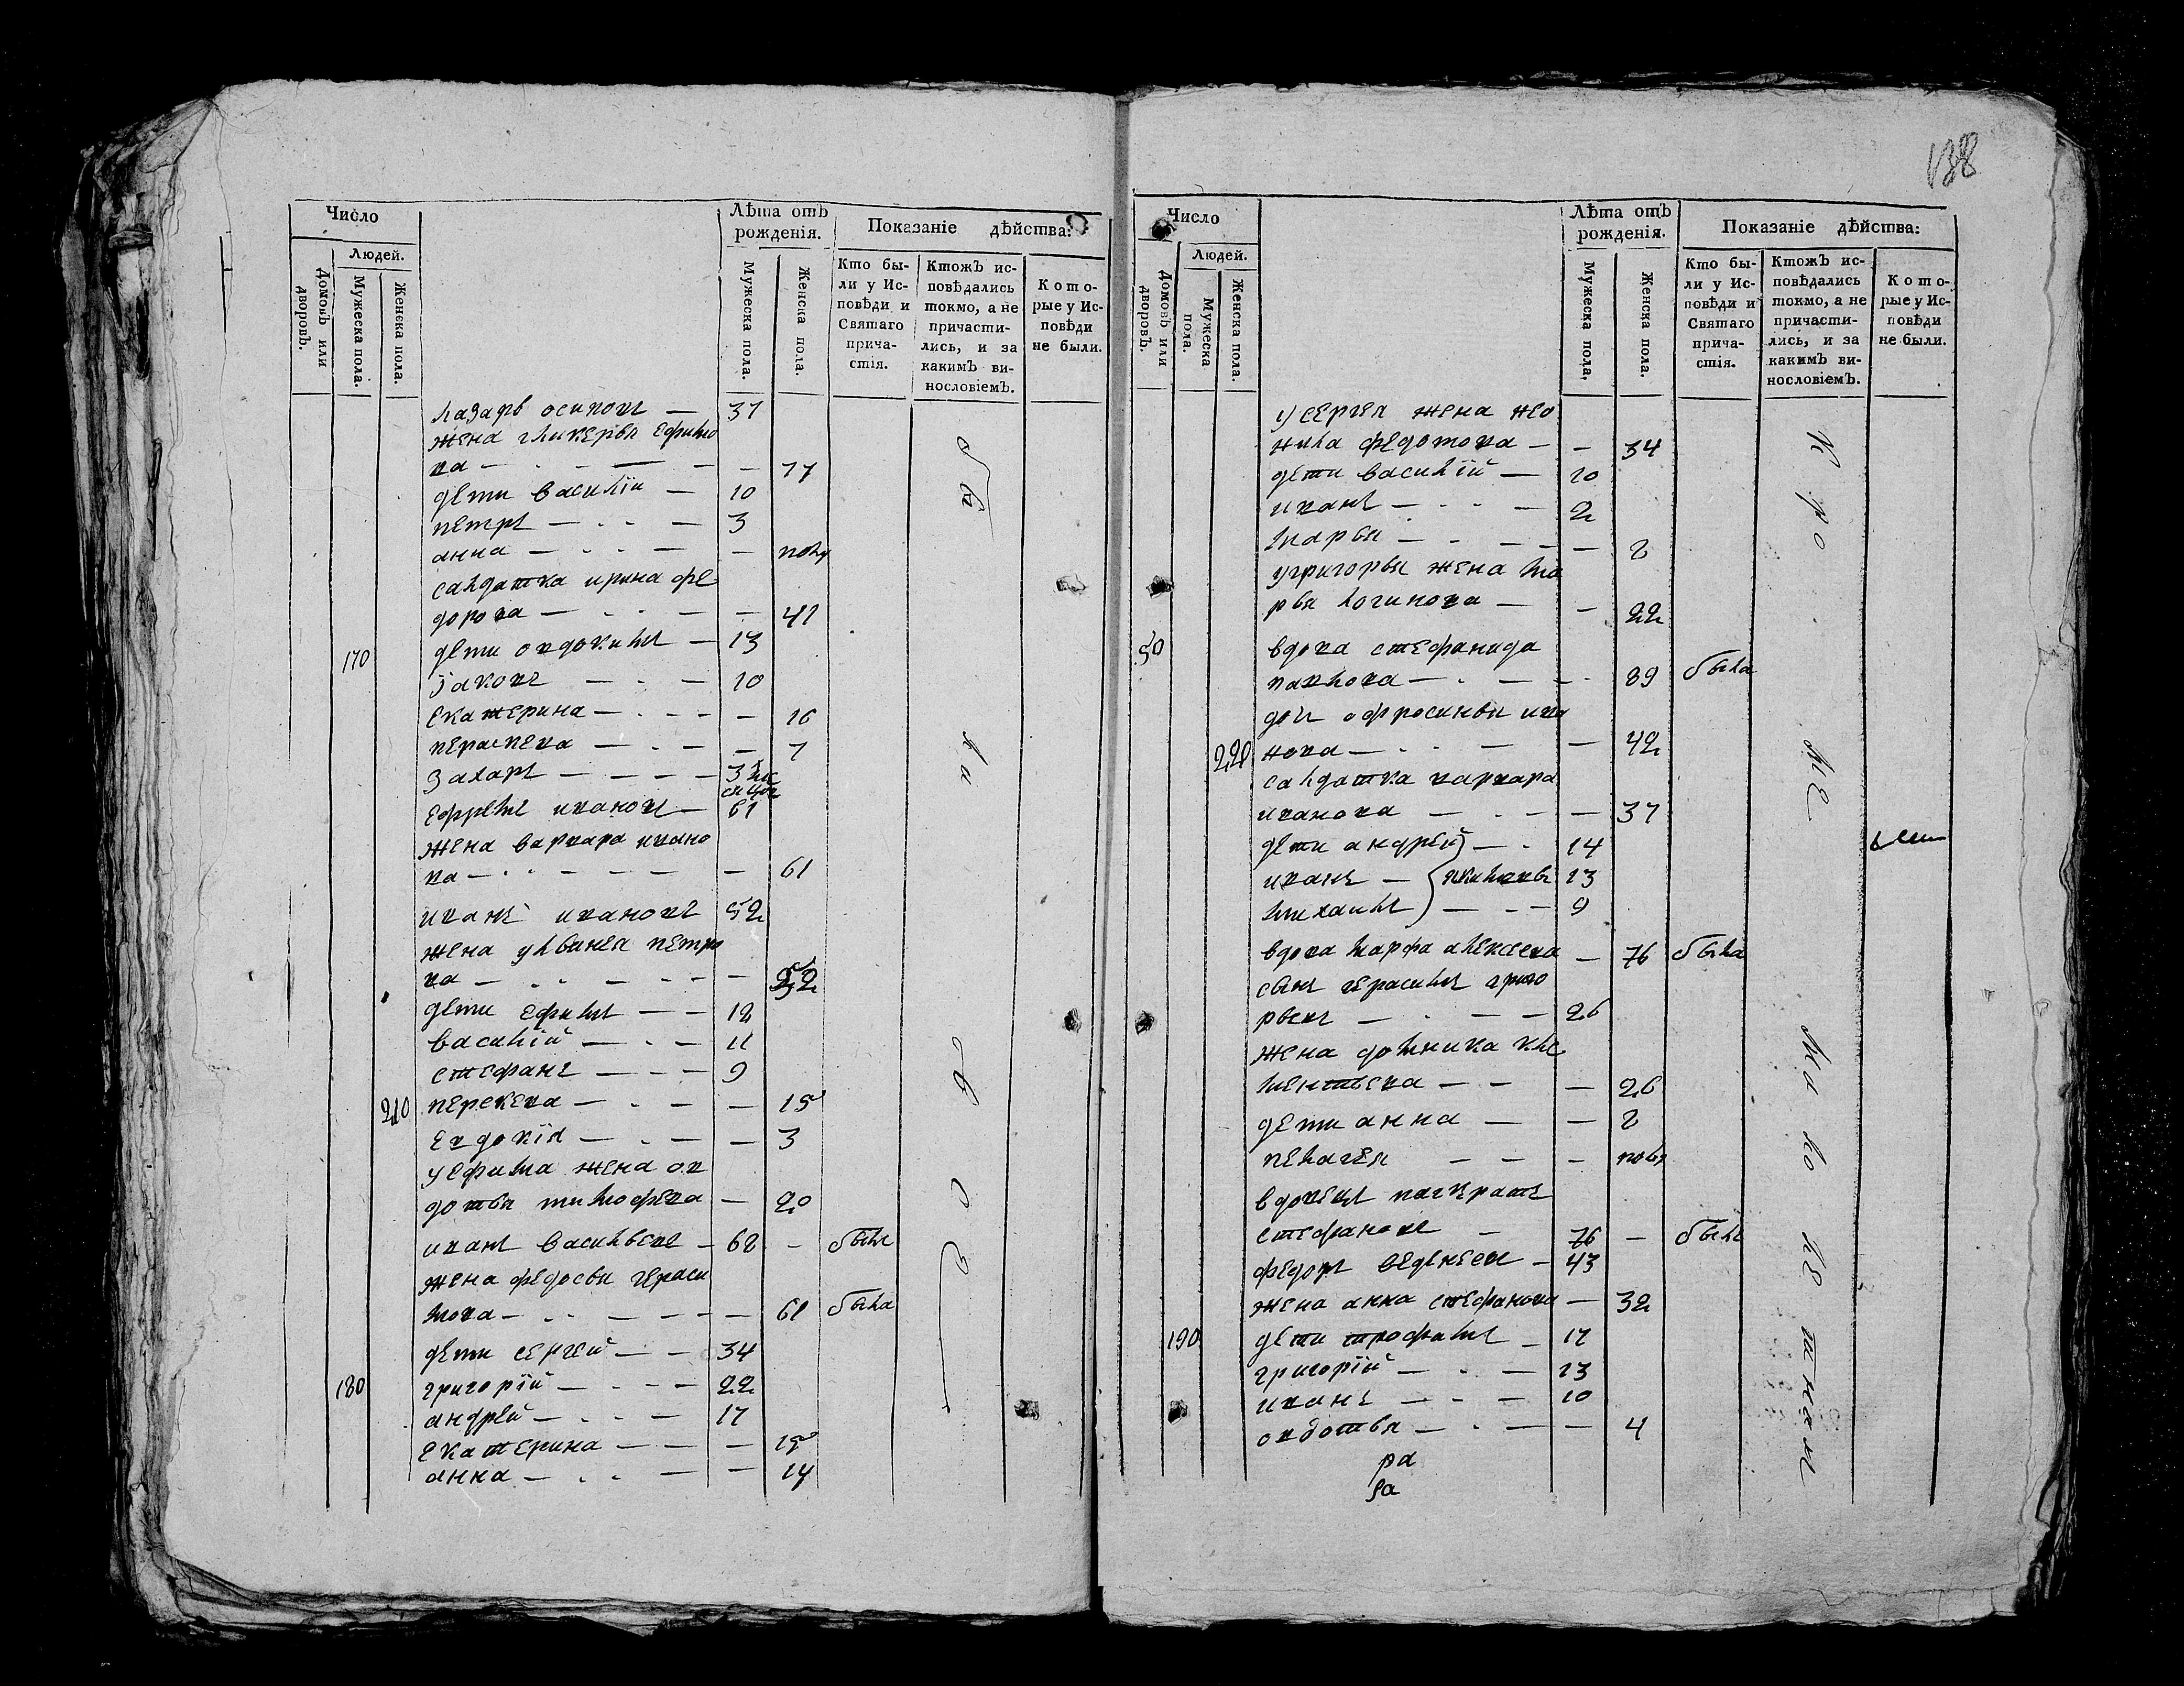 138
Число
Людей.
Домовъ или дворовъ.
Мужеска пола.
Женска пола.
Лѣта отъ рожденія.
Мужеска пола.
Женска пола.
Показаніе дѣйства:
Кто бы-
ли у Ис-
повѣди и
Святаго
прича-
стія.
Ктожъ ис-
повѣдались
токмо, а не
причасти-
лись, и за
какимъ ви-
нословіемъ.
Кото-
рые у Ис-
повѣди
не были.
лазарь осиповъ — 37
жена гликерья ефимо
ва — —
дети василїи — 10
петръ — 3
анна — — полу
салдатка ирина фе
дорова — — 41
170 дети овдокимъ — 13
їаковъ — 10
екатерина — — 16
пераскева — — 7
захаръ — 3
ефремъ ивановъ — 61
жена варвара ивано
ва — — 61
иванъ ивановъ 52
жена ульянея петро
ва — — 52
дети ефимъ — 12
василїй — 11
стефанъ — 9
210 перскева — — 15
евдокїя — — 3
у ефима жена ов
дотья тимофеева — 20
иванъ васильевъ — 62 — былъ
жена федосья гераси
мова — — 61 была
дети сергей — 34
180 григорїй — 22
андрей — 17
екатерина — — 15
анна — — 14
Число
Людей.
Домовъ или дворовъ.
Мужеска пола.
Женска пола.
Лѣта отъ рожденія.
Мужеска пола,
Женска пола.
Показаніе дѣйства:
Кто бы-
ли у Ис-
повѣди и
Святаго
прича-
стія.
Ктожъ ис-
повѣдались
токмо, а не
причасти-
лись, и за
какимъ ви-
нословіемъ.
Кото-
рые у Ис-
повѣди
не были.
у сергея жена нео
нила федотова — — 34
дети василїй — 10
иванъ — 2
марья — — 2
у григорья жена ма
рья логинова — — 22
50 вдова стефанида
павлова — — 89 была
дочь офросинья ива
220 нова — — 42
салдатка варвара
иванова — — 37
дети андрей — 14
иванъ — 13
михаилъ — 9
вдова марфа алексеева — 76 была
сынъ герасимъ григо
рьевъ — 26
жена домника кле
ментьева — — 26
дети анна — — 2
пелагея — —
вдовецъ панкратъ
стефановъ — 76 — былъ
федоръ веденеевъ — 43
жена анна стефанова — 32
190 дети трофимъ — 17
григорїй — 13
иванъ — 10
овдотья — — 4